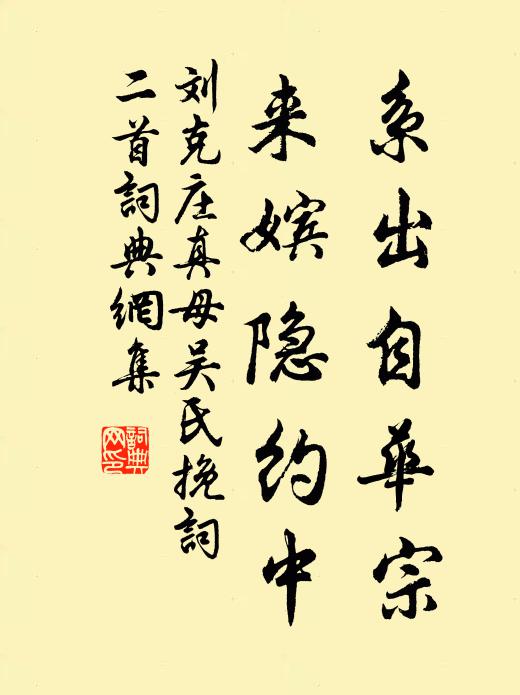 系出自華宗
来嫔隐約中
刘克庄真母吴氏挽詞
二首詞典網集
詞典
网印